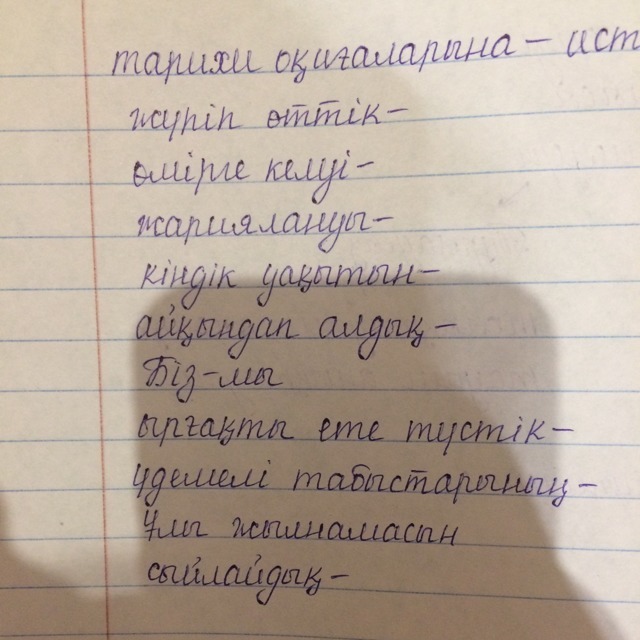 тарихи оқиғаларына – ист
жүріп өттік –
өмірге келуі –
жариялануы –
кіндік уақытын –
айқындап алдық –
Біз – мы
ырғақты ете түстік –
үдемелі табыстарының –
Ұлы жылнамасын
сыйлайдық –